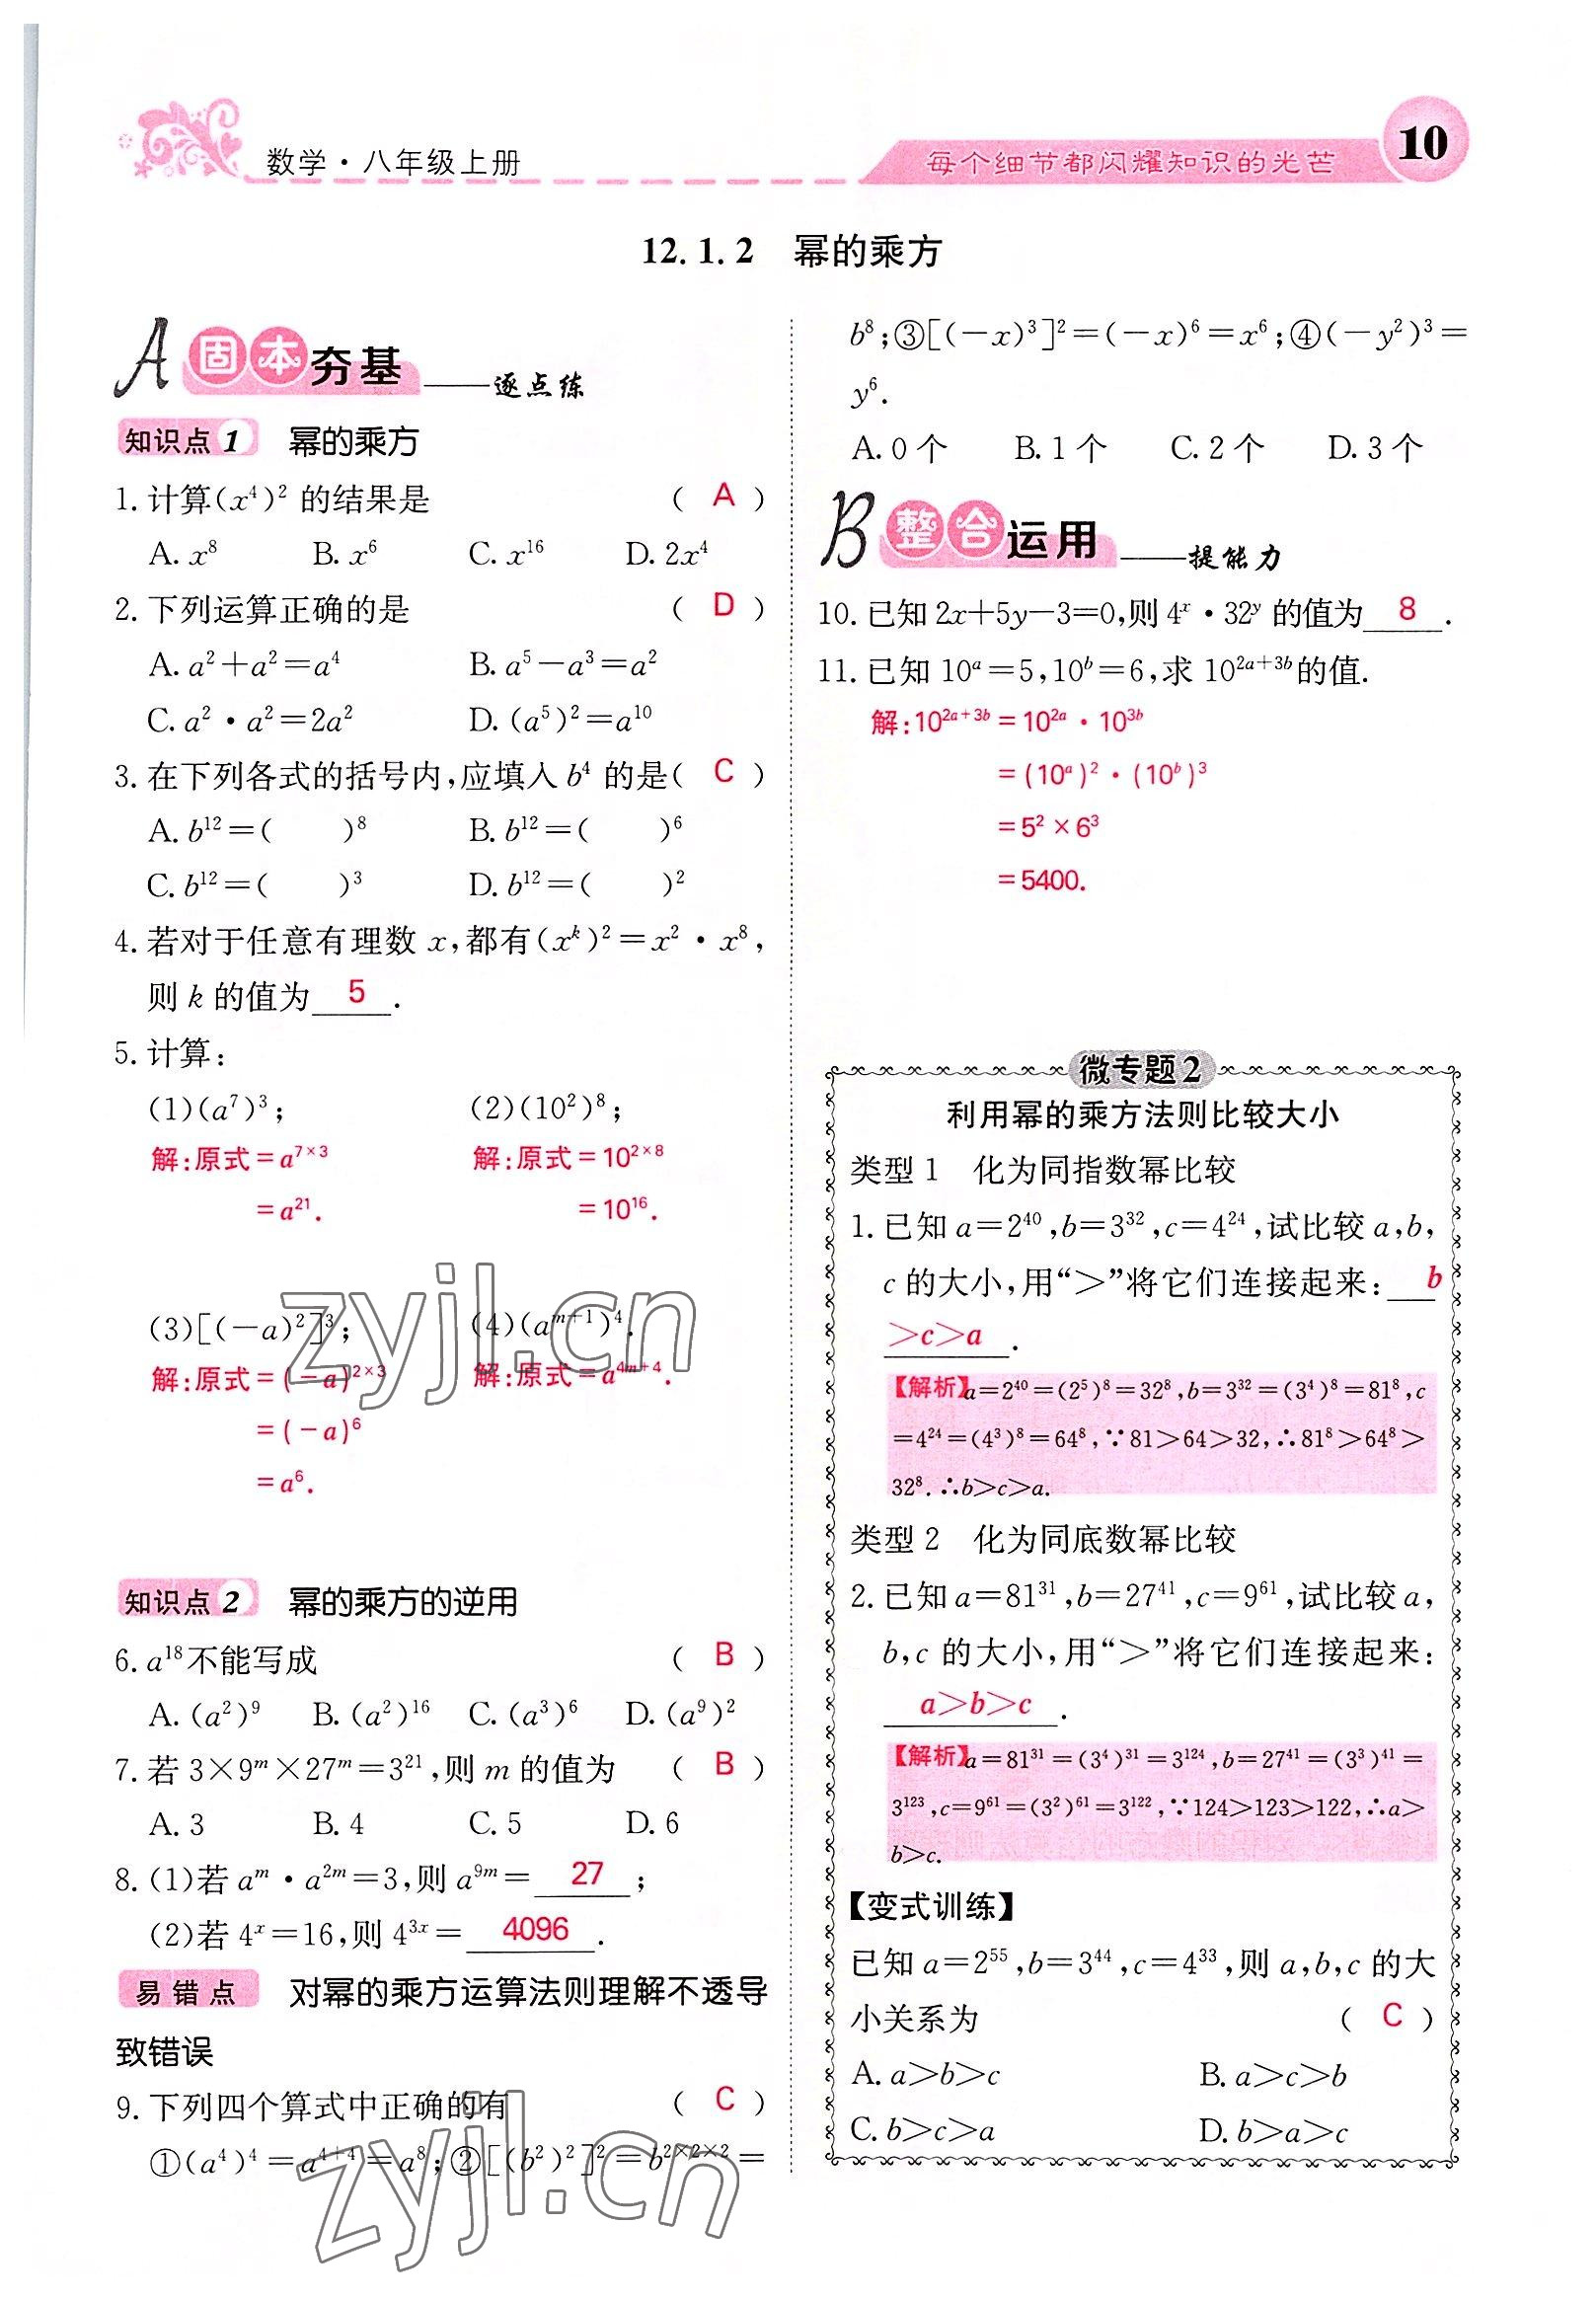 数学·八年级上册
每个细节都闪耀知识的光芒
10
12.1.2 幂的乘方
A 固本夯基——逐点练
知识点1 幂的乘方
1.计算(x⁴)² 的结果是 ( A )
A. x⁸ B. x⁶ C. x¹⁶ D. 2x⁴
2.下列运算正确的是 ( D )
A. a²+a²=a⁴ B. a⁵-a³=a²
C. a²·a²=2a² D. (a⁵)²=a¹⁰
3.在下列各式的括号内,应填入 b⁴ 的是( C )
A. b¹²=( )⁸ B. b¹²=( )⁶
C. b¹²=( )³ D. b¹²=( )²
4.若对于任意有理数 x,都有(xᵏ)²=x²·x⁸,
则 k 的值为 5 .
5.计算:
(1)(a⁷)³; (2)(10²)⁸;
解:原式=a^{7×3} 解:原式=10^{2×8}
=a²¹. =10¹⁶.
(3)[(-a)²]³; (4)(a^{m+1})⁴.
解:原式=(-a)^{2×3} 解:原式=a^{4m+4}.
=(-a)⁶
=a⁶.
知识点2 幂的乘方的逆用
6. a¹⁸不能写成 ( B )
A. (a²)⁹ B. (a²)¹⁶ C. (a³)⁶ D. (a⁹)²
7.若 3×9ᵐ×27ᵐ=3²¹,则 m 的值为 ( B )
A. 3 B. 4 C. 5 D. 6
8.(1)若 aᵐ·a^{2m}=3,则 a^{9m}= 27 ;
(2)若 4ˣ=16,则 4^{3x}= 4096 .
易错点 对幂的乘方运算法则理解不透导
致错误
9.下列四个算式中正确的有 ( C )
①(a⁴)⁴=a^{4+4}=a⁸;②[(b²)²]²=b^{2×2×2}=
b⁸;③[(-x)³]²=(-x)⁶=x⁶;④(-y²)³=
y⁶.
A. 0 个 B. 1 个 C. 2 个 D. 3 个
B 整合运用——提能力
10.已知 2x+5y-3=0,则 4ˣ·32ʸ 的值为 8 .
11.已知 10ᵃ=5,10ᵇ=6,求 10^{2a+3b}的值.
解:10^{2a+3b}=10^{2a}·10^{3b}
=(10ᵃ)²·(10ᵇ)³
=5²×6³
=5400.
微专题2
利用幂的乘方法则比较大小
类型 1 化为同指数幂比较
1.已知 a=2⁴⁰,b=3³²,c=4²⁴,试比较 a,b,
c 的大小,用“>”将它们连接起来: b
>c>a .
【解析】a=2⁴⁰=(2⁵)⁸=32⁸,b=3³²=(3⁴)⁸=81⁸,c
=4²⁴=(4³)⁸=64⁸,∵81>64>32,∴81⁸>64⁸>
32⁸.∴b>c>a.
类型 2 化为同底数幂比较
2.已知 a=81³¹,b=27⁴¹,c=9⁶¹,试比较 a,
b,c 的大小,用“>”将它们连接起来:
a>b>c .
【解析】a=81³¹=(3⁴)³¹=3¹²⁴,b=27⁴¹=(3³)⁴¹=
3¹²³,c=9⁶¹=(3²)⁶¹=3¹²²,∵124>123>122,∴a>
b>c.
【变式训练】
已知 a=2⁵⁵,b=3⁴⁴,c=4³³,则 a,b,c 的大
小关系为 ( C )
A. a>b>c B. a>c>b
C. b>c>a D. b>a>c
zyjl.cn
zyjl.cn